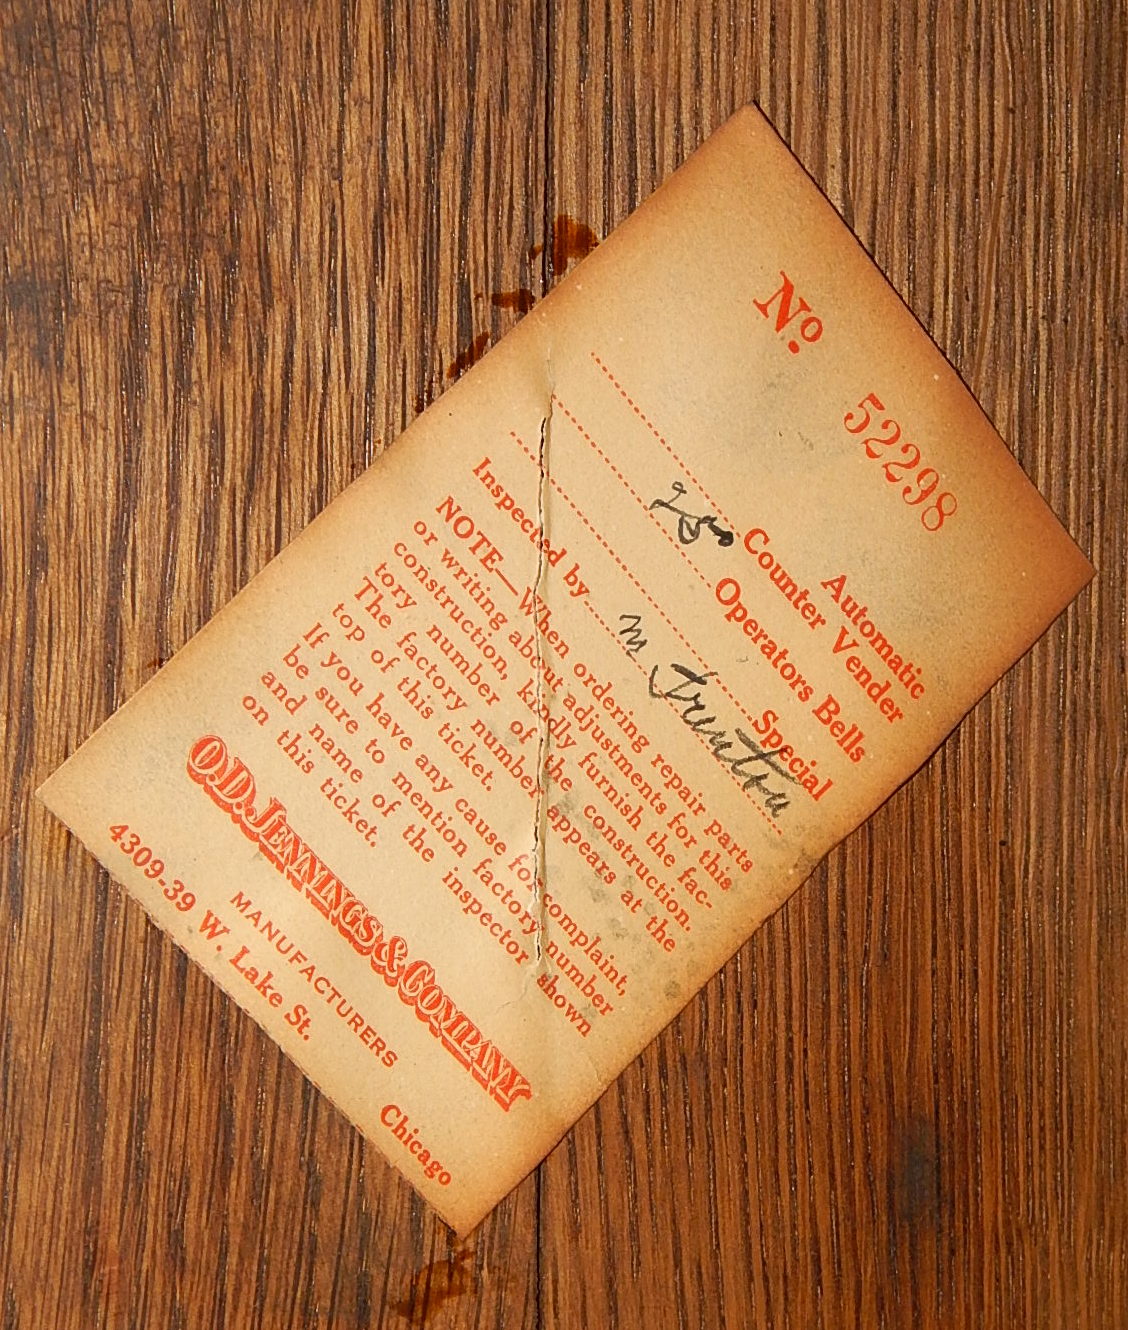 No. 52298
Automatic
Counter Vender
Operators Bells
Special
Inspected by
NOTE—When ordering repair parts
or writing about adjustments for this
construction, kindly furnish the fac-
tory number of the construction.
The factory number appears at the
top of this ticket.
If you have any cause for complaint,
be sure to mention factory number
and name of the inspector shown
on this ticket.
O.D. JENNINGS & COMPANY
MANUFACTURERS
4309-39 W. Lake St. Chicago